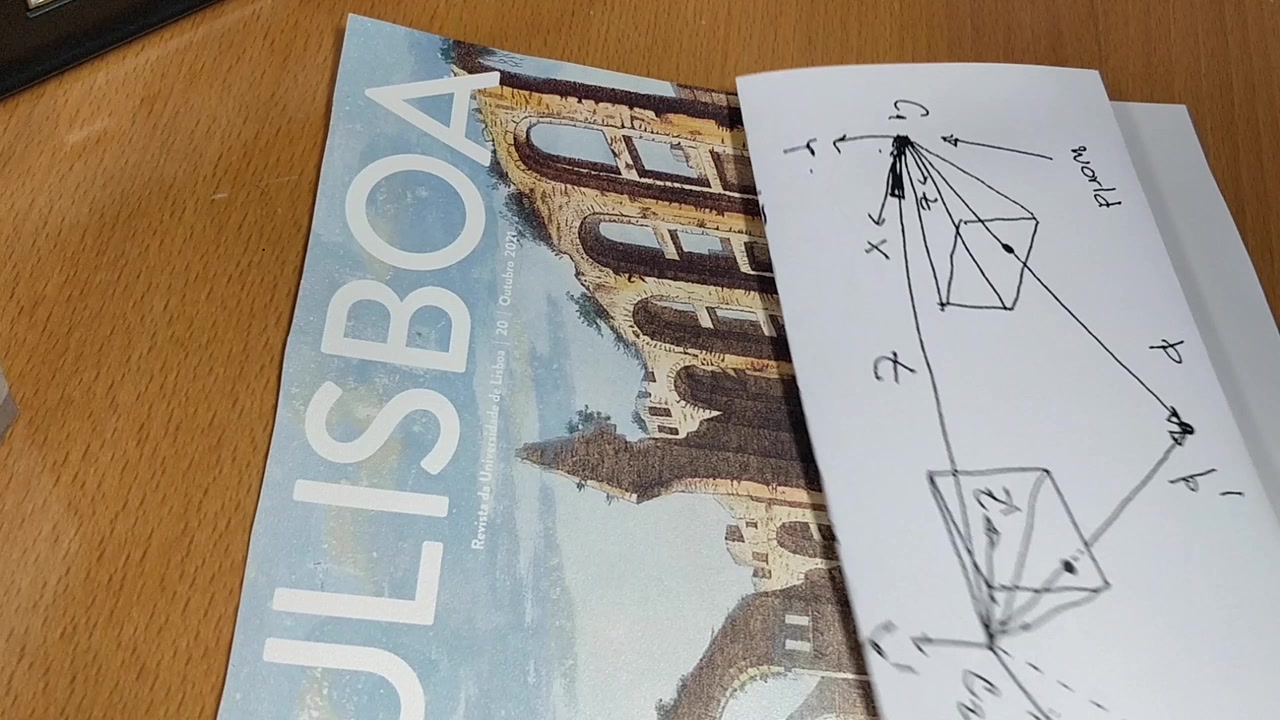 ULISBOA
Revista da Universidade de Lisboa | 20 | Outubro 2021
C1
world
y
z
x
t
p
p'
z